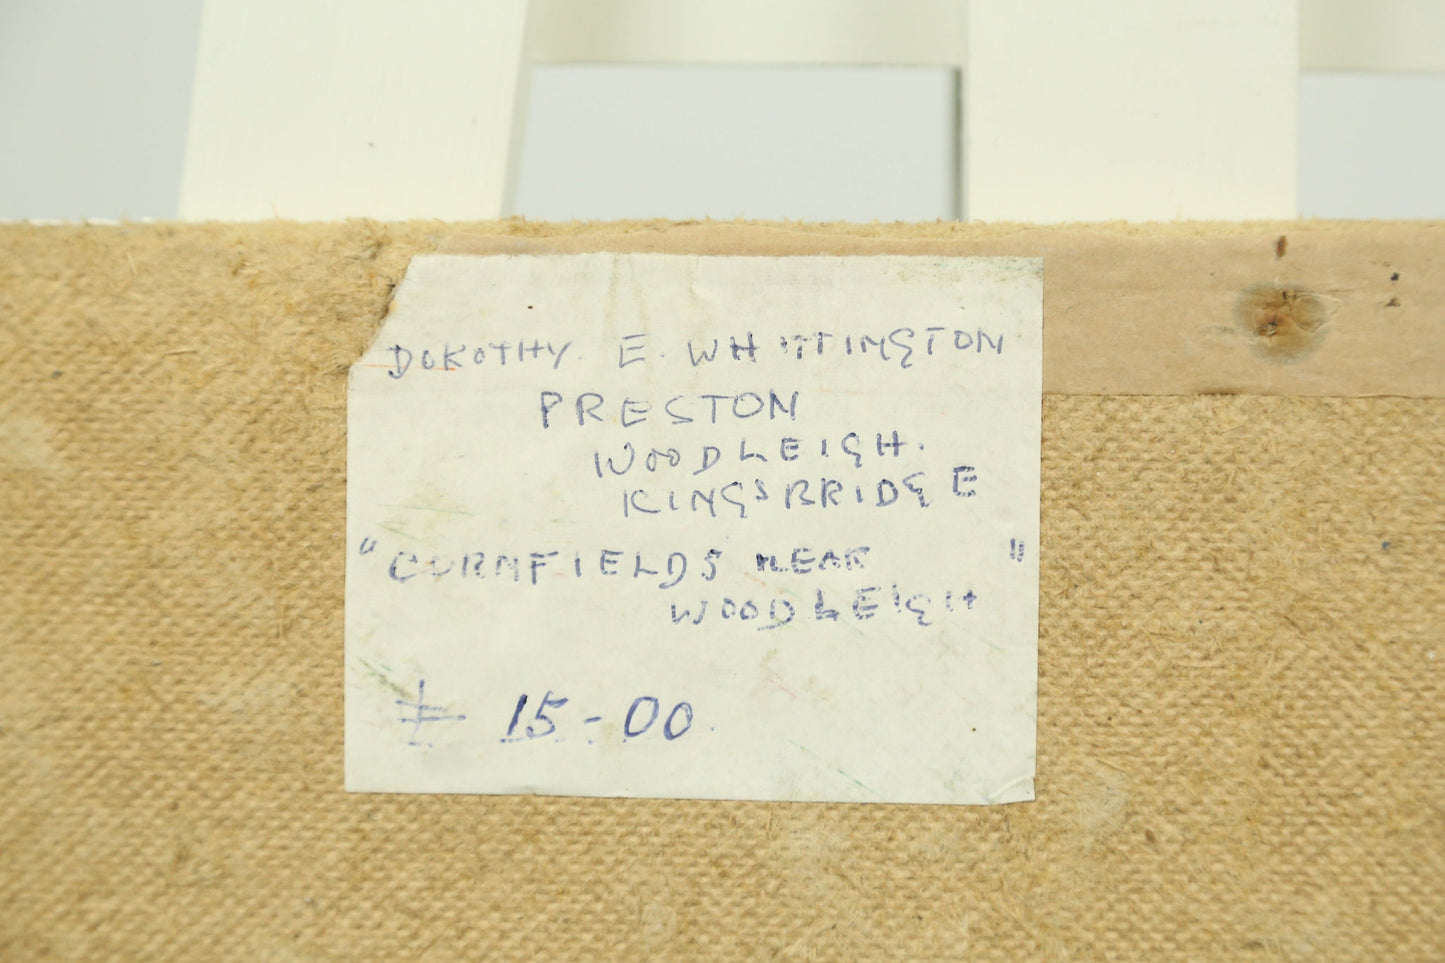 DOROTHY. E. WHITTINGTON
PRESTON
WOODLEIGH.
KINGSBRIDGE
"CORNFIELDS NEAR "
WOODLEIGH
£ 15-00.